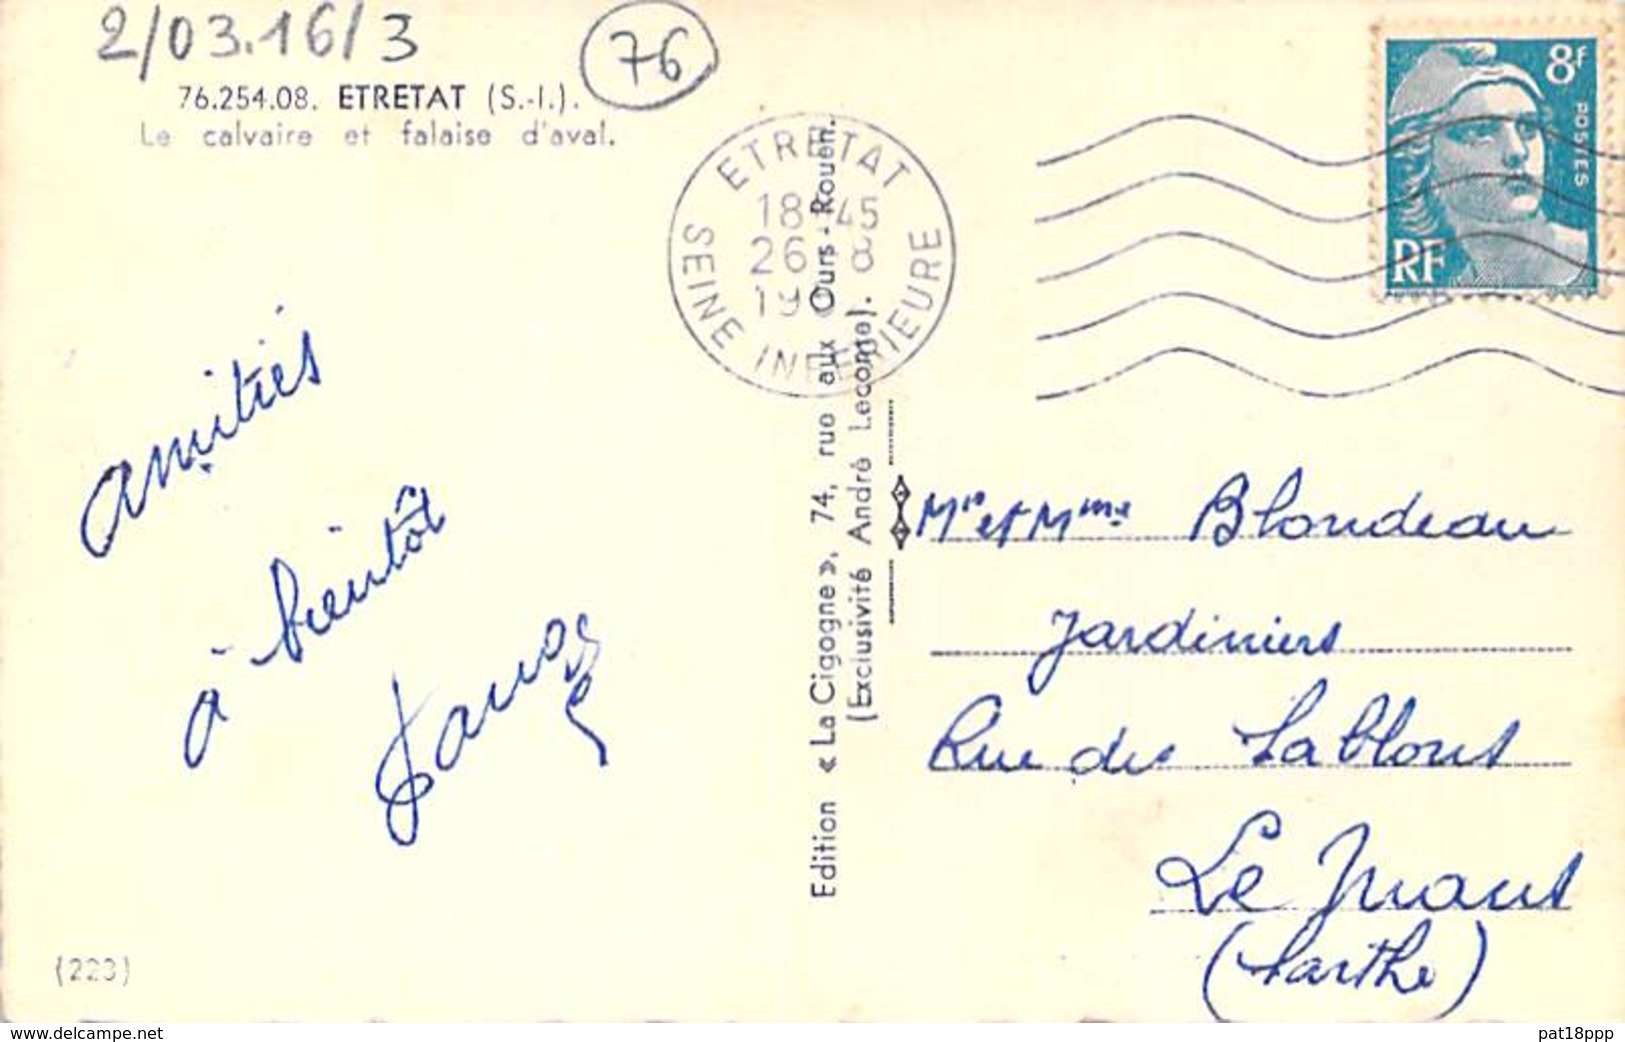 2/03.16/3
76
76.254.08. ETRETAT (S.-I.).
Le calvaire et falaise d'aval.
ETRETAT
18 45
26 8
19
SEINE INFERIEURE
8F
POSTES
RF
amitiés
à bientôt
Edition « La Cigogne », 74, rue aux Ours - Rouen.
(Exclusivité André Lecomte).
Mr et Mme Blondeau
Jardiniers
Rue des Sablons
Le Mans
(Sarthe)
(223)
www.delcampe.net
pat18ppp